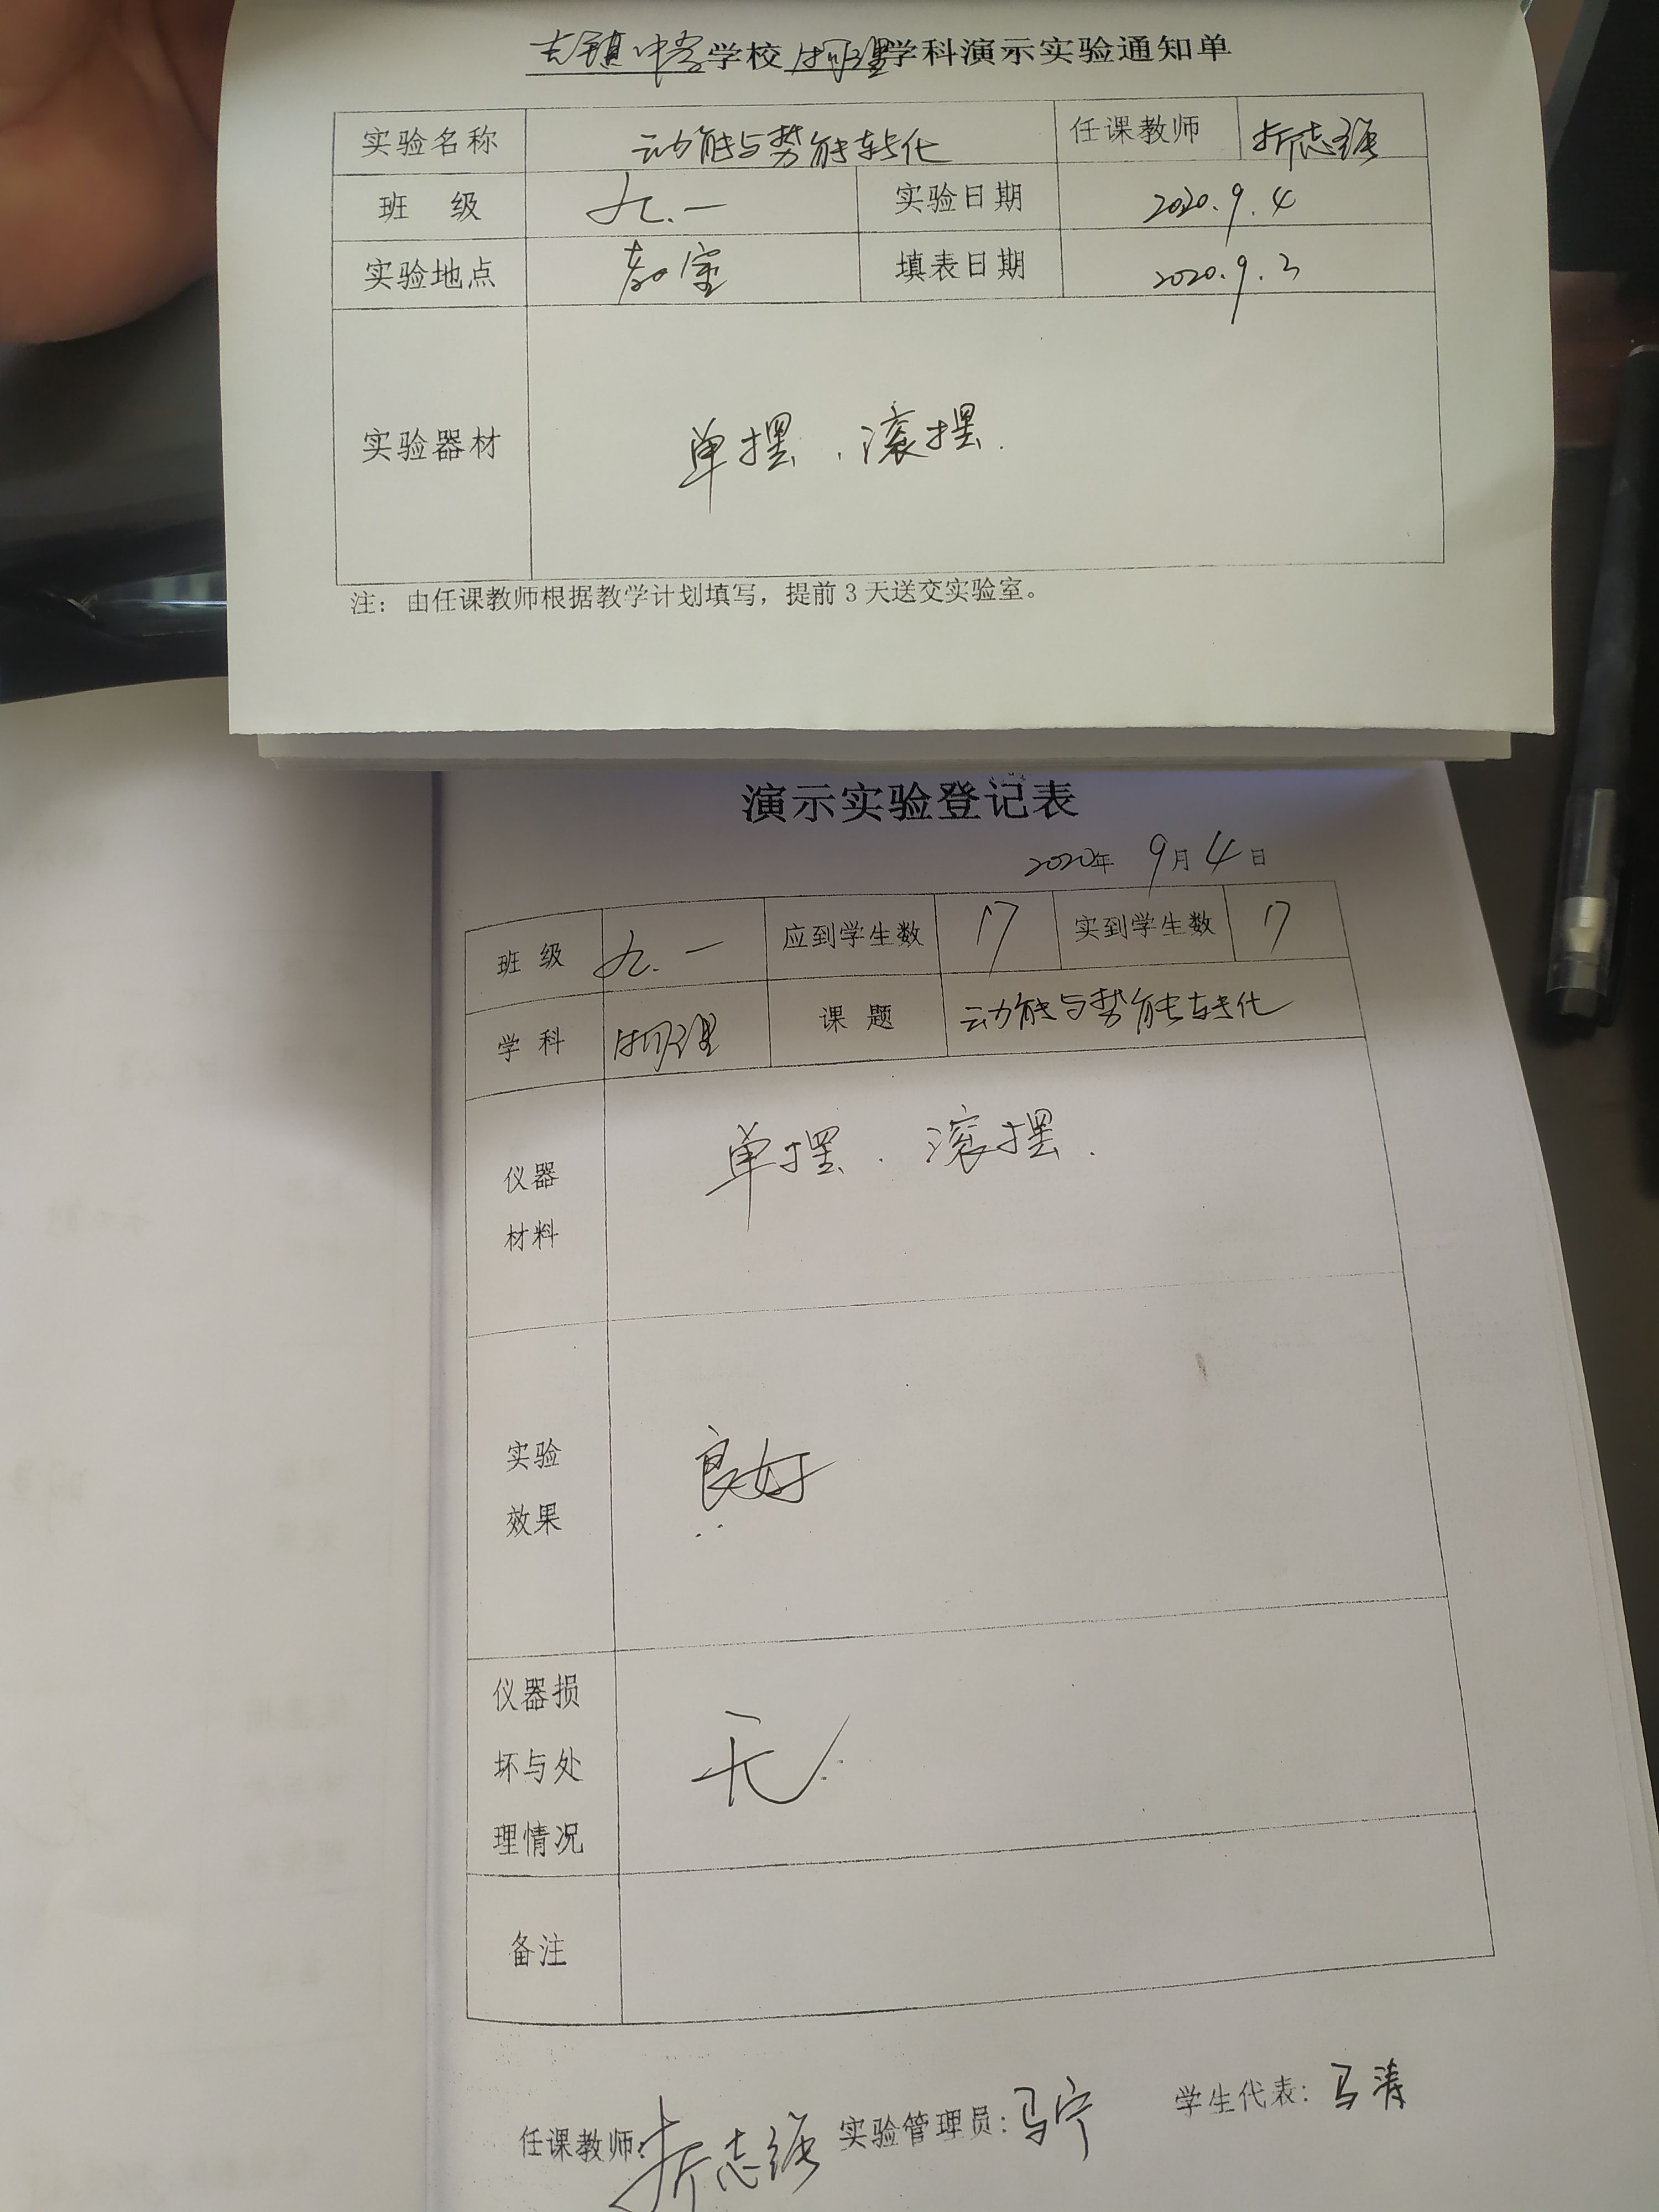 镇中学学校 物理学科演示实验通知单
实验名称 动能与势能转化 任课教师 折志强
班 级 九.一 实验日期 2020.9.4
实验地点 教室 填表日期 2020.9.2
实验器材 单摆、滚摆.
注：由任课教师根据教学计划填写，提前3天送交实验室。
演示实验登记表
2020年 9月4日
班 级 九.一 应到学生数 17 实到学生数 17
学 科 物理 课 题 动能与势能转化
仪器
材料
单摆、滚摆.
实验
效果
良好
仪器损
坏与处
理情况
无
备注
任课教师：折志强 实验管理员：马宁 学生代表：马涛